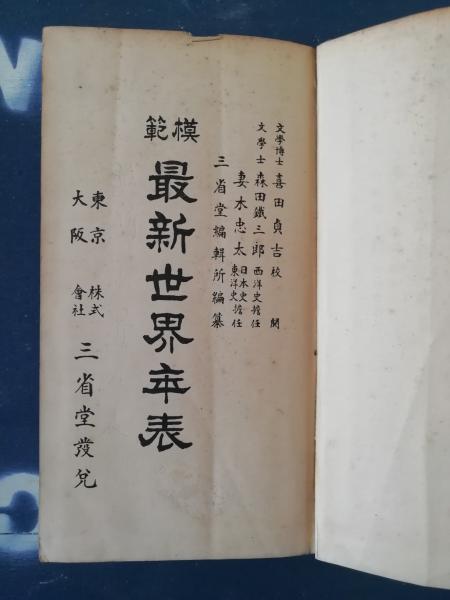 文學博士 喜田貞吉 校閲
文學士 森田鐵三郎 西洋史擔任
妻木忠太 日本史東洋史擔任
三省堂編輯所編纂
模範
最新世界年表
東京 大阪
株式會社 三省堂發兌